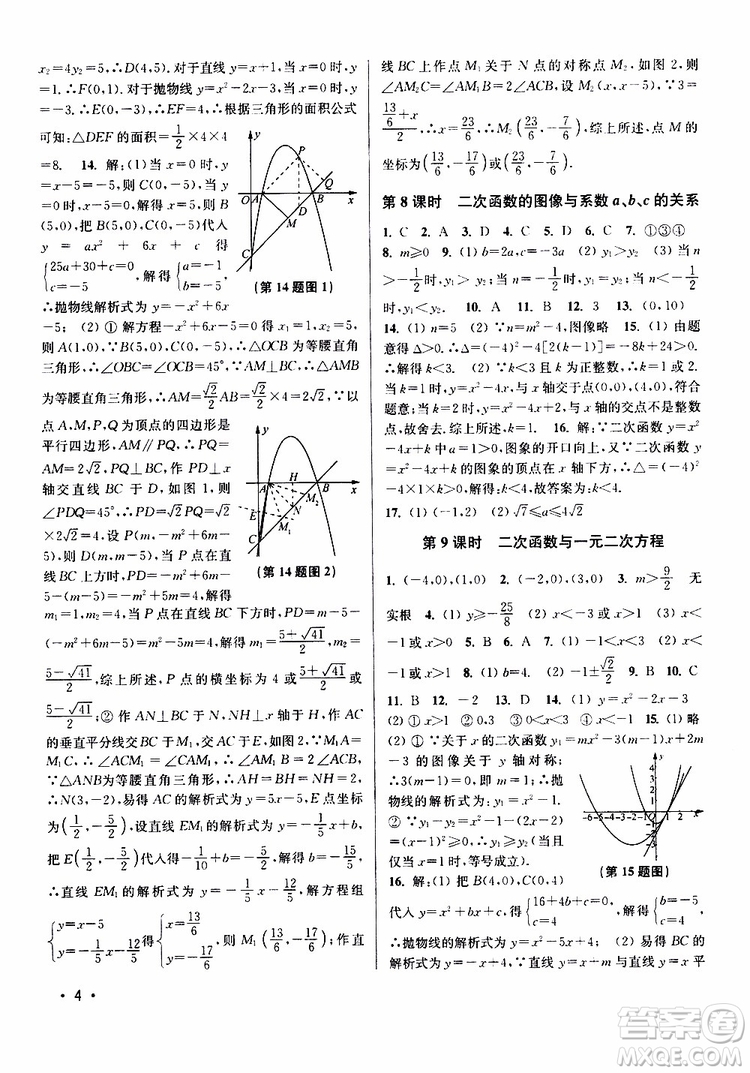 x₂=4y₂=5,∴D(4,5).对于直线y=x+1,当x=0时,y=
1.∴F(0,1).对于抛物线y=x²-x-3,当x=0时,y=
-3,∴E(0,-3),∴EF=4;∴根据三角形的面积公式
可知:△DEF的面积=1/2×4×4
=8. 14. 解:(1)当x=0时,
y=x-5=-5,则C(0,-5),当
y=0时,x-5=0,解得x=5,则
B(5,0),把B(5,0),C(0,-5)代入
y = ax² + 6x + c得
{25a+30+c=0 c=-5,解得{a=-1 c=-5,
∴抛物线解析式为y=-x²+6x
-5;(2)①解方程-x²+6x-5=0得x₁=1,x₂=5,
则A(1,0),∵B(5,0),C(0,-5),∴△OCB为等腰直角
三角形,∴∠OBC=∠OCB=45°,∵AM⊥BC,∴△AMB
为等腰直角三角形,∴AM=√2/2AB=√2/2×4=2√2,∵以
点A,M,P,Q为顶点的四边形是
平行四边形,AM∥PQ,∴PQ=
AM=2√2,PQ⊥BC,作PD⊥x
轴交直线BC于D,如图1,则
∠PDQ=45°,∴PD=√2PQ=√2×
2√2=4,设P(m,-m²+6m-5),
则D(m,m-5),当P点在直线
BC上方时,PD=-m²+6m-5-
(m-5)=-m²+5m=4,解得
m₁=1,m₂=4,当P点在直线BC下方时,PD=m-5-
(-m²+6m-5)=m²-5m=4,解得m₁=(5+√41)/2,m₂=
(5-√41)/2,综上所述,P点的横坐标为4或(5+√41)/2或
(5-√41)/2;②作AN⊥BC于N,NH⊥x轴于H,作AC
的垂直平分线交BC于M₁,交AC于E,如图2,∵M₁A=
M₁C,∴∠ACM₁=∠CAM₁,∴∠AM₁B=2∠ACB,
∵△ANB为等腰直角三角形,∴AH=BH=NH=2,
∴N(3,-2),易得AC的解析式为y=5x-5,E点坐标
为(1/2,-5/2),设直线EM₁的解析式为y=-1/5x+b,
把E(1/2,-5/2)代入得-1/10+b=-5/2,解得b=-12/5,
∴直线EM₁的解析式为y=-1/5x-12/5,解方程组
{y=x-5 y=-1/5x-12/5得{x=13/6 y=-17/6,则M₁(13/6,-17/6);作直
(第14题图1)
(第14题图2)
· 4 ·
线BC上作点M₁关于N点的对称点M₂,如图2,则
∠AM₂C=∠AM₁B=2∠ACB,设M₂(x,x-5),∵3=
(13/6+x)/2,∴x=23/6,∴M₂(23/6,-7/6),综上所述,点M的
坐标为(13/6,-17/6)或(23/6,-7/6).
第8课时 二次函数的图像与系数a、b、c的关系
1. C 2. A 3. D 4. C 5. D 6. C 7. ①③④
8. m≥0 9. (1)b=2a,c=-3a (2)y₁>y₂ (3)当n
>-1/2时,y₁>y₂;当n=-1/2时,y₁=y₂;当n<-1/2
时,y₁<y₂. 10. A 11. B 12. 3 13. ④
14. (1)n=5 (2)∵n=m²-4,图像略 15. (1)由题
意得Δ>0.∴Δ=16-4[2(k-1)]=-8k+24>0.
∴解得k<3. (2)∵k<3且k为正整数,∴k=1或2.
当k=1时,y=x²-4x,与x轴交于点(0,0)、(4,0),符合
题意;当k=2时,y=x²-4x+2,与x轴的交点不是整数
点,故舍去.综上所述,k=1. 16. 解:∵二次函数y=x²
-4x+k中a=1>0,∴图象的开口向上,又∵二次函数y
=x²-4x+k的图象的顶点在x轴下方,∴Δ=(-4)²
-4×1×k>0,解得k<4.故答案为:k<4.
17. (1)(-1,2) (2)√7≤a≤4√2
第9课时 二次函数与一元二次方程
1. (-4,0),(1,0) 2. (-2,0),(3,0) 3. m>9/2 无
实根 4. (1)y≥-25/8 (2)x<-3或x>1 (3)x<
-1或x>1 5. B 6. A 7. B 8. A 9. C
10. (1)b=4. (2)-1±√2/2
11. B 12. -2 13. D 14. (1)x²-2x
(2)①x>1 ②0、3 ③0<x<3 15. (1)略
(2)①∵关于x的二次函数y₁=mx²+nx
-3的图像关于y轴对称;
∴3(m-1)=0.即m=1.∴抛
物线的解析式为:y₁=x²-3.
②∵y₁-y₂=3(x-1)²≥0,
∴y₁≥y₂.(当且
仅当x=1时,等号成立).
(第15题图)
-6-5-4-3-2-1O 1 2 x
y 4 3 2 1
16. 解:(1)把B(4,0),C(0,4)
代入y=x²+bx+c得{16+4b+c=0 c=4,解得{b=-5 c=4,
∴抛物线的解析式为y=x²-5x+4; (2)易得BC的
解析式为y=-x+4,∵直线y=x+m与直线y=x平